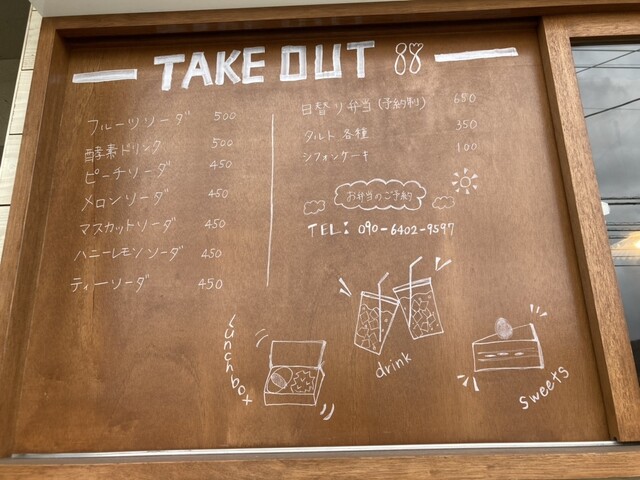 TAKE OUT
フルーツソーダ 500
酵素ドリンク 500
ピーチソーダ 450
メロンソーダ 450
マスカットソーダ 450
ハニーレモンソーダ 450
ティーソーダ 450
日替り弁当(予約制) 650
タルト各種 350
シフォンケーキ 100
お弁当のご予約
TEL: 090-6402-9597
lunch box
drink
sweets